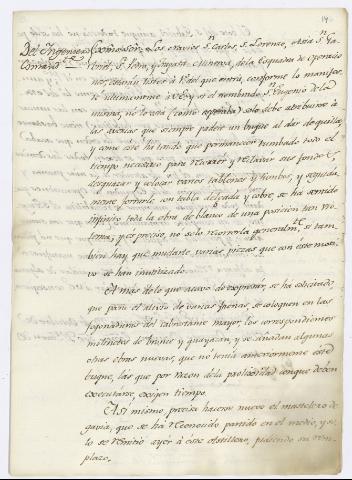 Del Ingeniero
Comand.te
Excmo Señor = Los navios Sn. Carlos, Sn. Lorenzo, Asia Sn. Ge-
naro, Sn. Pedro, y fragata Minerva, de la Esquadra de Operacio
nes, estarán listos à fin del que entra, conforme lo manifes-
té ultimamente à V.E. y si el nombrado Sn. Eugenio de la
misma, no lo está (como repetido) solo debe atribuirse à
las averias que siempre padece un buque al dar de quilla,
y como este ha tenido que permanecer tumbado todo el
tiempo necesario para recorrer y reclavar sus fondos,
desguazar y colocar varios tablones y rumbos, y seguida
mente forrarle con tabla delgada y cobre, se ha sentido
infinito toda la obra de blanco de una posicion tan vio-
lenta, y es preciso, no solo recorrerla generalm.te si tam-
bien hay que mudarle varias piezas que con este moti
vo se han inutilizado.
A mas de lo que acavo de expresar, se ha solicitado,
que para el alivio de varias faenas, se coloquen en las
fogonaduras del cabrestante mayor, los correspondientes
molinetes de bronce y guayacan, y se añadan algunas
otras obras nuevas, que no tenia anteriormente este
buque, las que por razon de la prolixidad con que deben
executarse, exigen tiempo.
Asi mismo, precisa hacerse nuevo el mastelero de
gavia, que se ha reconocido partido en el medio, y so
lo se remitió ayer à este obstillero, pidiendo su rem-
plazo.